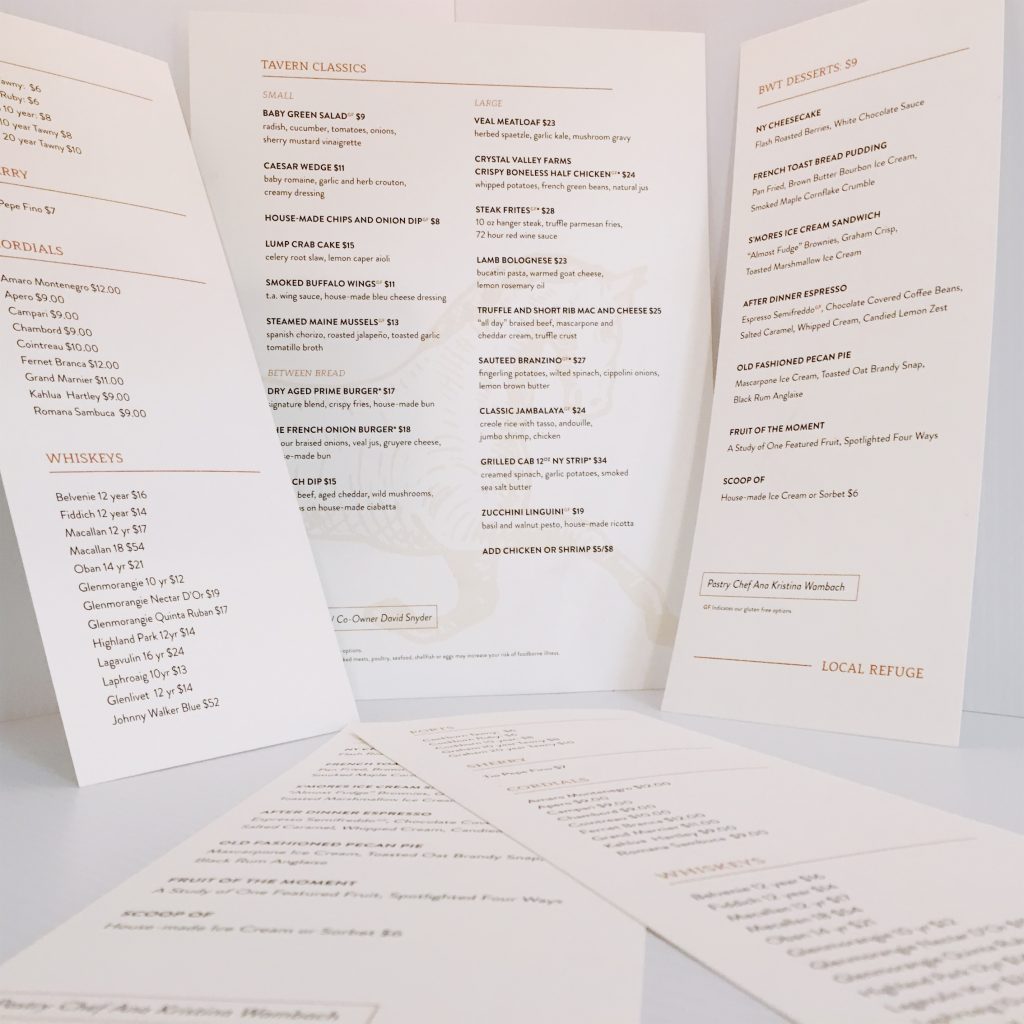 awny: $6
Ruby: $6
10 year: $8
10 year Tawny $8
20 year Tawny $10
RRY
Pepe Fino $7
CORDIALS
Amaro Montenegro $12.00
Apero $9.00
Campari $9.00
Chambord $9.00
Cointreau $10.00
Fernet Branca $12.00
Grand Marnier $11.00
Kahlua Hartley $9.00
Romana Sambuca $9.00
WHISKEYS
Belvenie 12 year $16
Fiddich 12 year $14
Macallan 12 yr $17
Macallan 18 $54
Oban 14 yr $21
Glenmorangie 10 yr $12
Glenmorangie Nectar D'Or $19
Glenmorangie Quinta Ruban $17
Highland Park 12yr $14
Lagavulin 16 yr $24
Laphroaig 10yr $13
Glenlivet 12 yr $14
Johnny Walker Blue $52
TAVERN CLASSICS
SMALL
BABY GREEN SALAD GF $9
radish, cucumber, tomatoes, onions,
sherry mustard vinaigrette
CAESAR WEDGE $11
baby romaine, garlic and herb crouton,
creamy dressing
HOUSE-MADE CHIPS AND ONION DIP GF $8
LUMP CRAB CAKE $15
celery root slaw, lemon caper aioli
SMOKED BUFFALO WINGS GF $11
t.a. wing sauce, house-made bleu cheese dressing
STEAMED MAINE MUSSELS GF $13
spanish chorizo, roasted jalapeño, toasted garlic
tomatillo broth
BETWEEN BREAD
DRY AGED PRIME BURGER* $17
signature blend, crispy fries, house-made bun
THE FRENCH ONION BURGER* $18
our braised onions, veal jus, gruyere cheese,
se-made bun
CH DIP $15
beef, aged cheddar, wild mushrooms,
ns on house-made ciabatta
/ Co-Owner David Snyder
options.
ked meats, poultry, seafood, shellfish or eggs may increase your risk of foodborne illness.
LARGE
VEAL MEATLOAF $23
herbed spaetzle, garlic kale, mushroom gravy
CRYSTAL VALLEY FARMS
CRISPY BONELESS HALF CHICKEN GF* $24
whipped potatoes, french green beans, natural jus
STEAK FRITES GF* $28
10 oz hanger steak, truffle parmesan fries,
72 hour red wine sauce
LAMB BOLOGNESE $23
bucatini pasta, warmed goat cheese,
lemon rosemary oil
TRUFFLE AND SHORT RIB MAC AND CHEESE $25
"all day" braised beef, mascarpone and
cheddar cream, truffle crust
SAUTEED BRANZINO GF* $27
fingerling potatoes, wilted spinach, cippolini onions,
lemon brown butter
CLASSIC JAMBALAYA GF $24
creole rice with tasso, andouille,
jumbo shrimp, chicken
GRILLED CAB 12OZ NY STRIP* $34
creamed spinach, garlic potatoes, smoked
sea salt butter
ZUCCHINI LINGUINI GF $19
basil and walnut pesto, house-made ricotta
ADD CHICKEN OR SHRIMP $5/$8
BWT DESSERTS: $9
NY CHEESECAKE
Flash Roasted Berries, White Chocolate Sauce
FRENCH TOAST BREAD PUDDING
Pan Fried, Brown Butter Bourbon Ice Cream,
Smoked Maple Cornflake Crumble
S'MORES ICE CREAM SANDWICH
"Almost Fudge" Brownies, Graham Crisp,
Toasted Marshmallow Ice Cream
AFTER DINNER ESPRESSO
Espresso Semifreddo GF, Chocolate Covered Coffee Beans,
Salted Caramel, Whipped Cream, Candied Lemon Zest
OLD FASHIONED PECAN PIE
Mascarpone Ice Cream, Toasted Oat Brandy Snap,
Black Rum Anglaise
FRUIT OF THE MOMENT
A Study of One Featured Fruit, Spotlighted Four Ways
SCOOP OF
House-made Ice Cream or Sorbet $6
Pastry Chef Ana Kristina Wambach
GF Indicates our gluten free options
LOCAL REFUGE
NY C
Flash R
FRENCH TOA
Pan Fried, Brown
Smoked Maple Corn
S'MORES ICE CREAM S
"Almost Fudge" Brownies, G
Toasted Marshmallow Ice Crea
AFTER DINNER ESPRESSO
Espresso Semifreddo GF, Chocolate Cove
Salted Caramel, Whipped Cream, Candied
OLD FASHIONED PECAN PIE
Mascarpone Ice Cream, Toasted Oat Brandy Snap,
Black Rum Anglaise
FRUIT OF THE MOMENT
A Study of One Featured Fruit, Spotlighted Four Ways
SCOOP OF
House-made Ice Cream or Sorbet $6
Pastry Chef Ana Kristina Wambach
PORTS
Cockburn Tawny: $6
Cockburn Ruby: $6
Cockburn 10 year: $8
Graham 10 year Tawny $8
Graham 20 year Tawny $10
SHERRY
Tio Pepe Fino $7
CORDIALS
Amaro Montenegro $12.00
Apero $9.00
Campari $9.00
Chambord $9.00
Cointreau $10.00
Fernet Branca $12.00
Grand Marnier $11.00
Kahlua Hartley $9.00
Romana Sambuca $9.00
WHISKEYS
Belvenie 12 year $16
Fiddich 12 year $14
Macallan 12 yr $17
Macallan 18 $54
Oban 14 yr $21
Glenmorangie 10 yr $12
Glenmorangie Nectar D'Or $1
Glenmorangie Quinta Ruba
Highland Park 12yr $14
Lagavulin 16 yr $24
Laphroaig 10